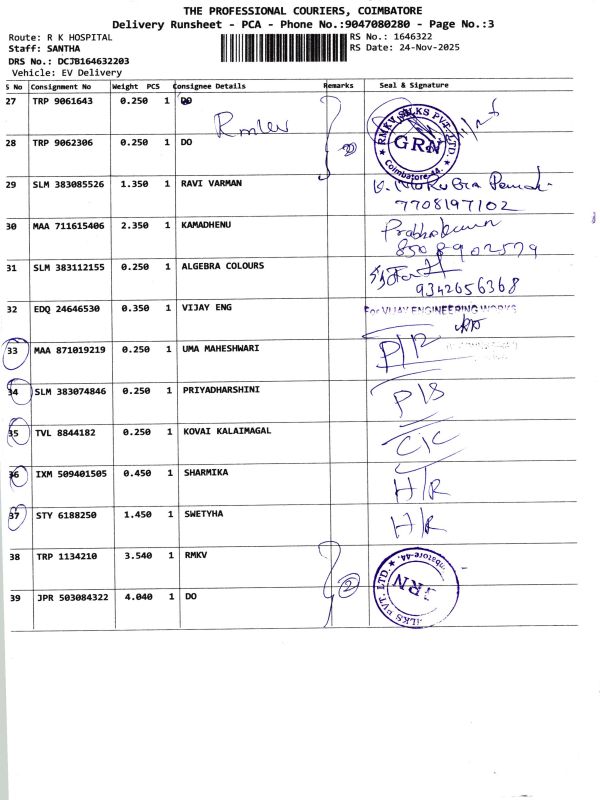 THE PROFESSIONAL COURIERS, COIMBATORE
Delivery Runsheet - PCA - Phone No.:9047080280 - Page No.:3
Route: R K HOSPITAL
RS No.: 1646322
Staff: SANTHA
RS Date: 24-Nov-2025
DRS No.: DCJB164632203
Vehicle: EV Delivery
S No Consignment No Weight PCS Consignee Details Remarks Seal & Signature
27 TRP 9061643 0.250 1 DO
RMKV SILKS PVT. LTD. GRN Coimbatore-44.
28 TRP 9062306 0.250 1 DO
29 SLM 383085526 1.350 1 RAVI VARMAN
7708197102
30 MAA 711615406 2.350 1 KAMADHENU
8508902579
31 SLM 383112155 0.250 1 ALGEBRA COLOURS
9342656368
32 EDQ 24646530 0.350 1 VIJAY ENG For VIJAY ENGINEERING WORKS
33 MAA 871019219 0.250 1 UMA MAHESHWARI P/R
34 SLM 383074846 0.250 1 PRIYADHARSHINI P/S
35 TVL 8844182 0.250 1 KOVAI KALAIMAGAL C/C
36 IXM 509401505 0.450 1 SHARMIKA H/R
37 STY 6188250 1.450 1 SWETYHA H/R
38 TRP 1134210 3.540 1 RMKV
2
39 JPR 503084322 4.040 1 DO